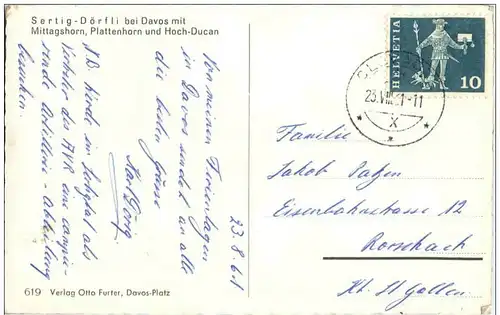 Sertig-Dörfli bei Davos mit
Mittagshorn, Plattenhorn und Hoch-Ducan
23.8.61
Von meinen Ferientagen
in Davos sendet an alle
die besten Grüsse
N.B. Werde im als
Vertreter des eine
Artillerie-abteilung
besuchen.
619 Verlag Otto Furter, Davos-Platz
HELVETIA
10
23.VIII.61-11
X
Familie
Jakob
Eisenbahnstrasse 12
Rorschach
Kt. St Gallen